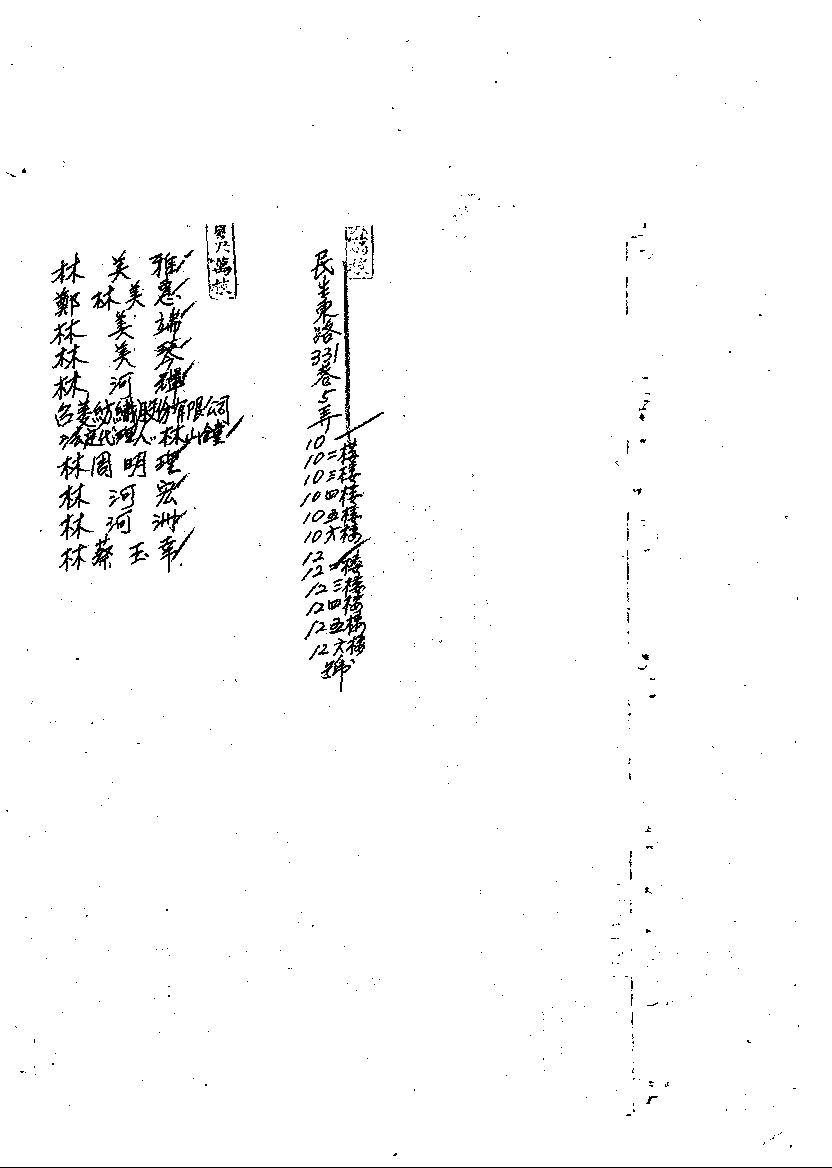 民生東路331巷5弄
10
10二樓
10三樓
10四樓
10五樓
10六樓
12
12二樓
12三樓
12四樓
12五樓
12六樓
號
林美雅
鄭林美惠
林美端
林美琴
林河
名美紡織股份有限公司
法定代理人:林山鐘
林周明理
林河宏
林河洲
林蔡玉幸